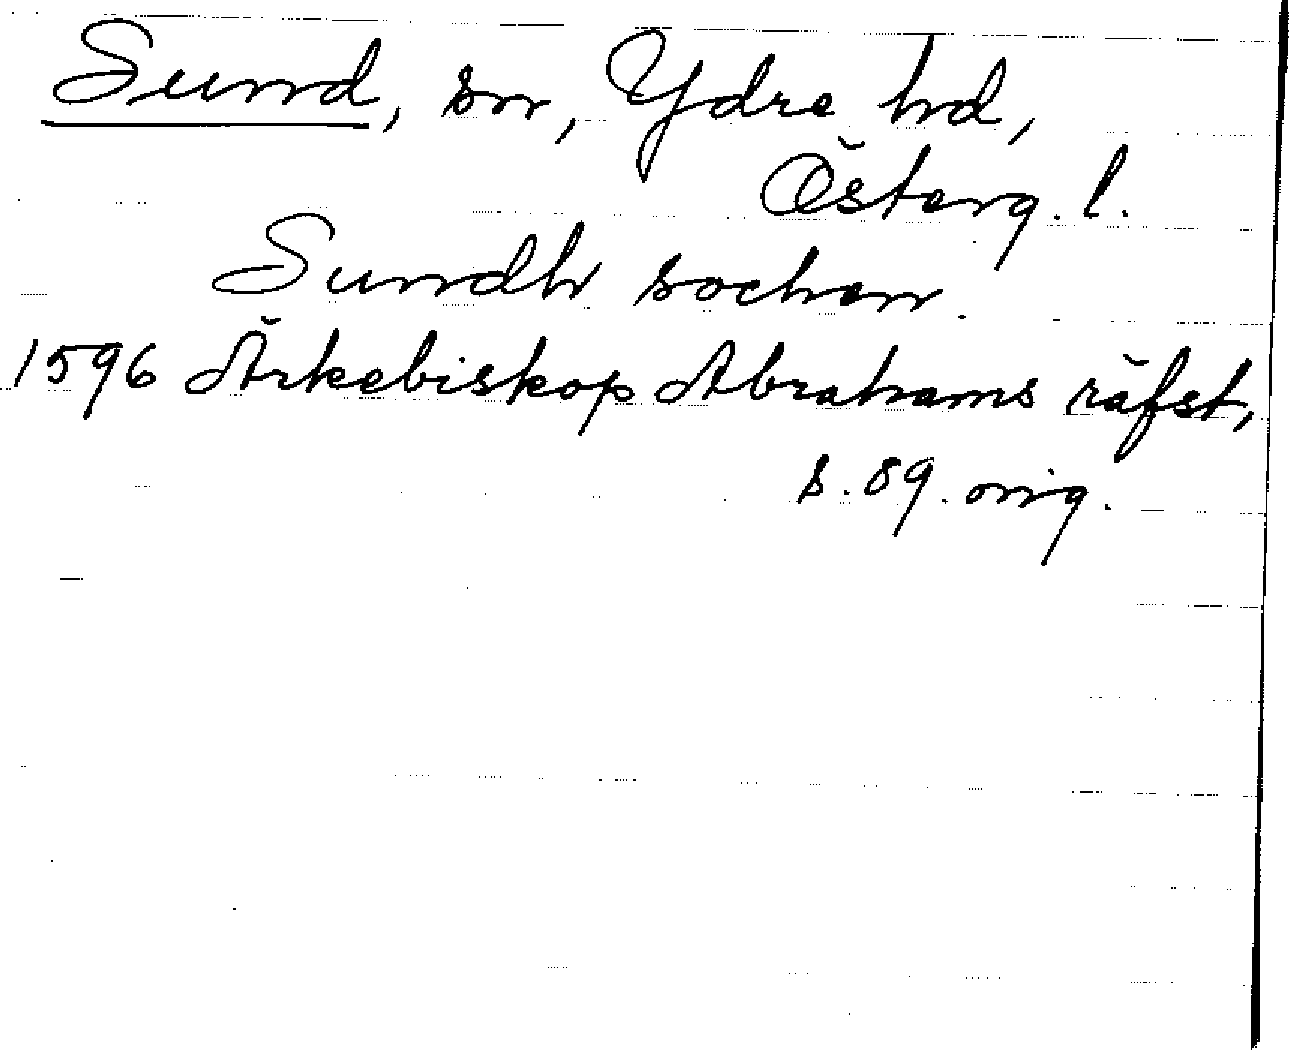 Sund, sn, Ydre hd,
Österg. l.
Sundh sochen.
1596 Ärkebiskop Abrahams räfst,
s. 89. orig.